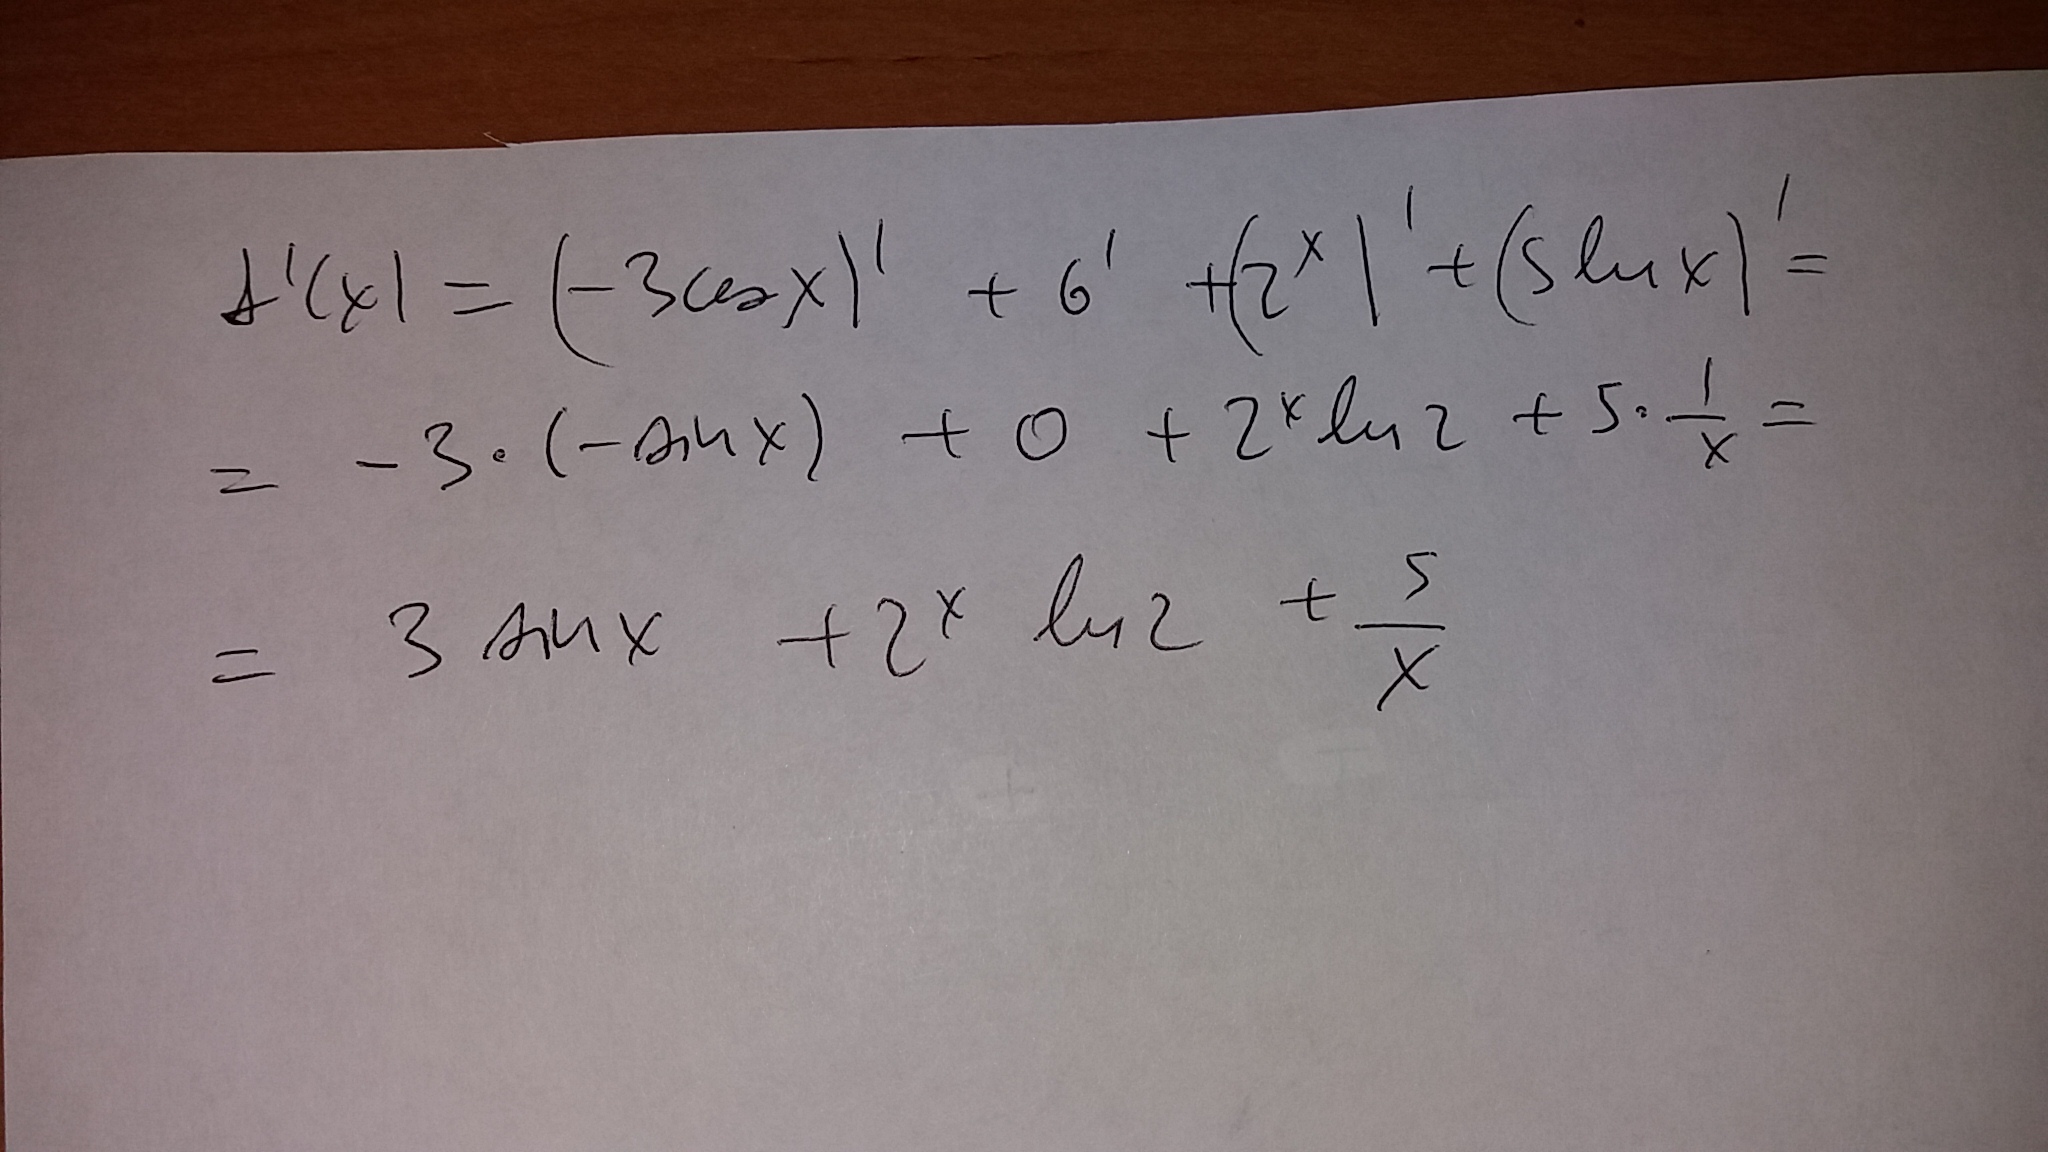 f'(x) = (-3cosx)' + 6' + (2^x)' + (5lnx)' =
= -3·(-sinx) + 0 + 2^x ln2 + 5·1/x =
= 3 sinx + 2^x ln2 + 5/x